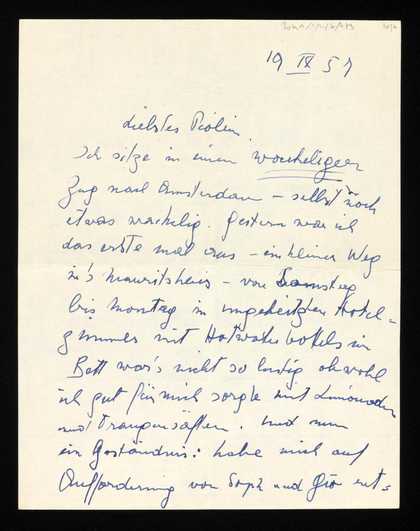 19 IX 57
Liebstes Piolin
Ich sitze in einem wackeligen
Zug nach Amsterdam – selbst noch
etwas wackelig. Gestern war ich
das erste mal aus – ein kleiner Weg
in's Mauritshuis – von Samstag
bis Montag in ungeheizten Hotel-
zimmer mit Hotwaterbottels im
Bett war's nicht so lustig obwohl
ich gut für mich sorgte mit Limonaden
und Orangensäften. Und nun
ein Geständnis: habe mich auf
Aufforderung von Soph und Gio ent=